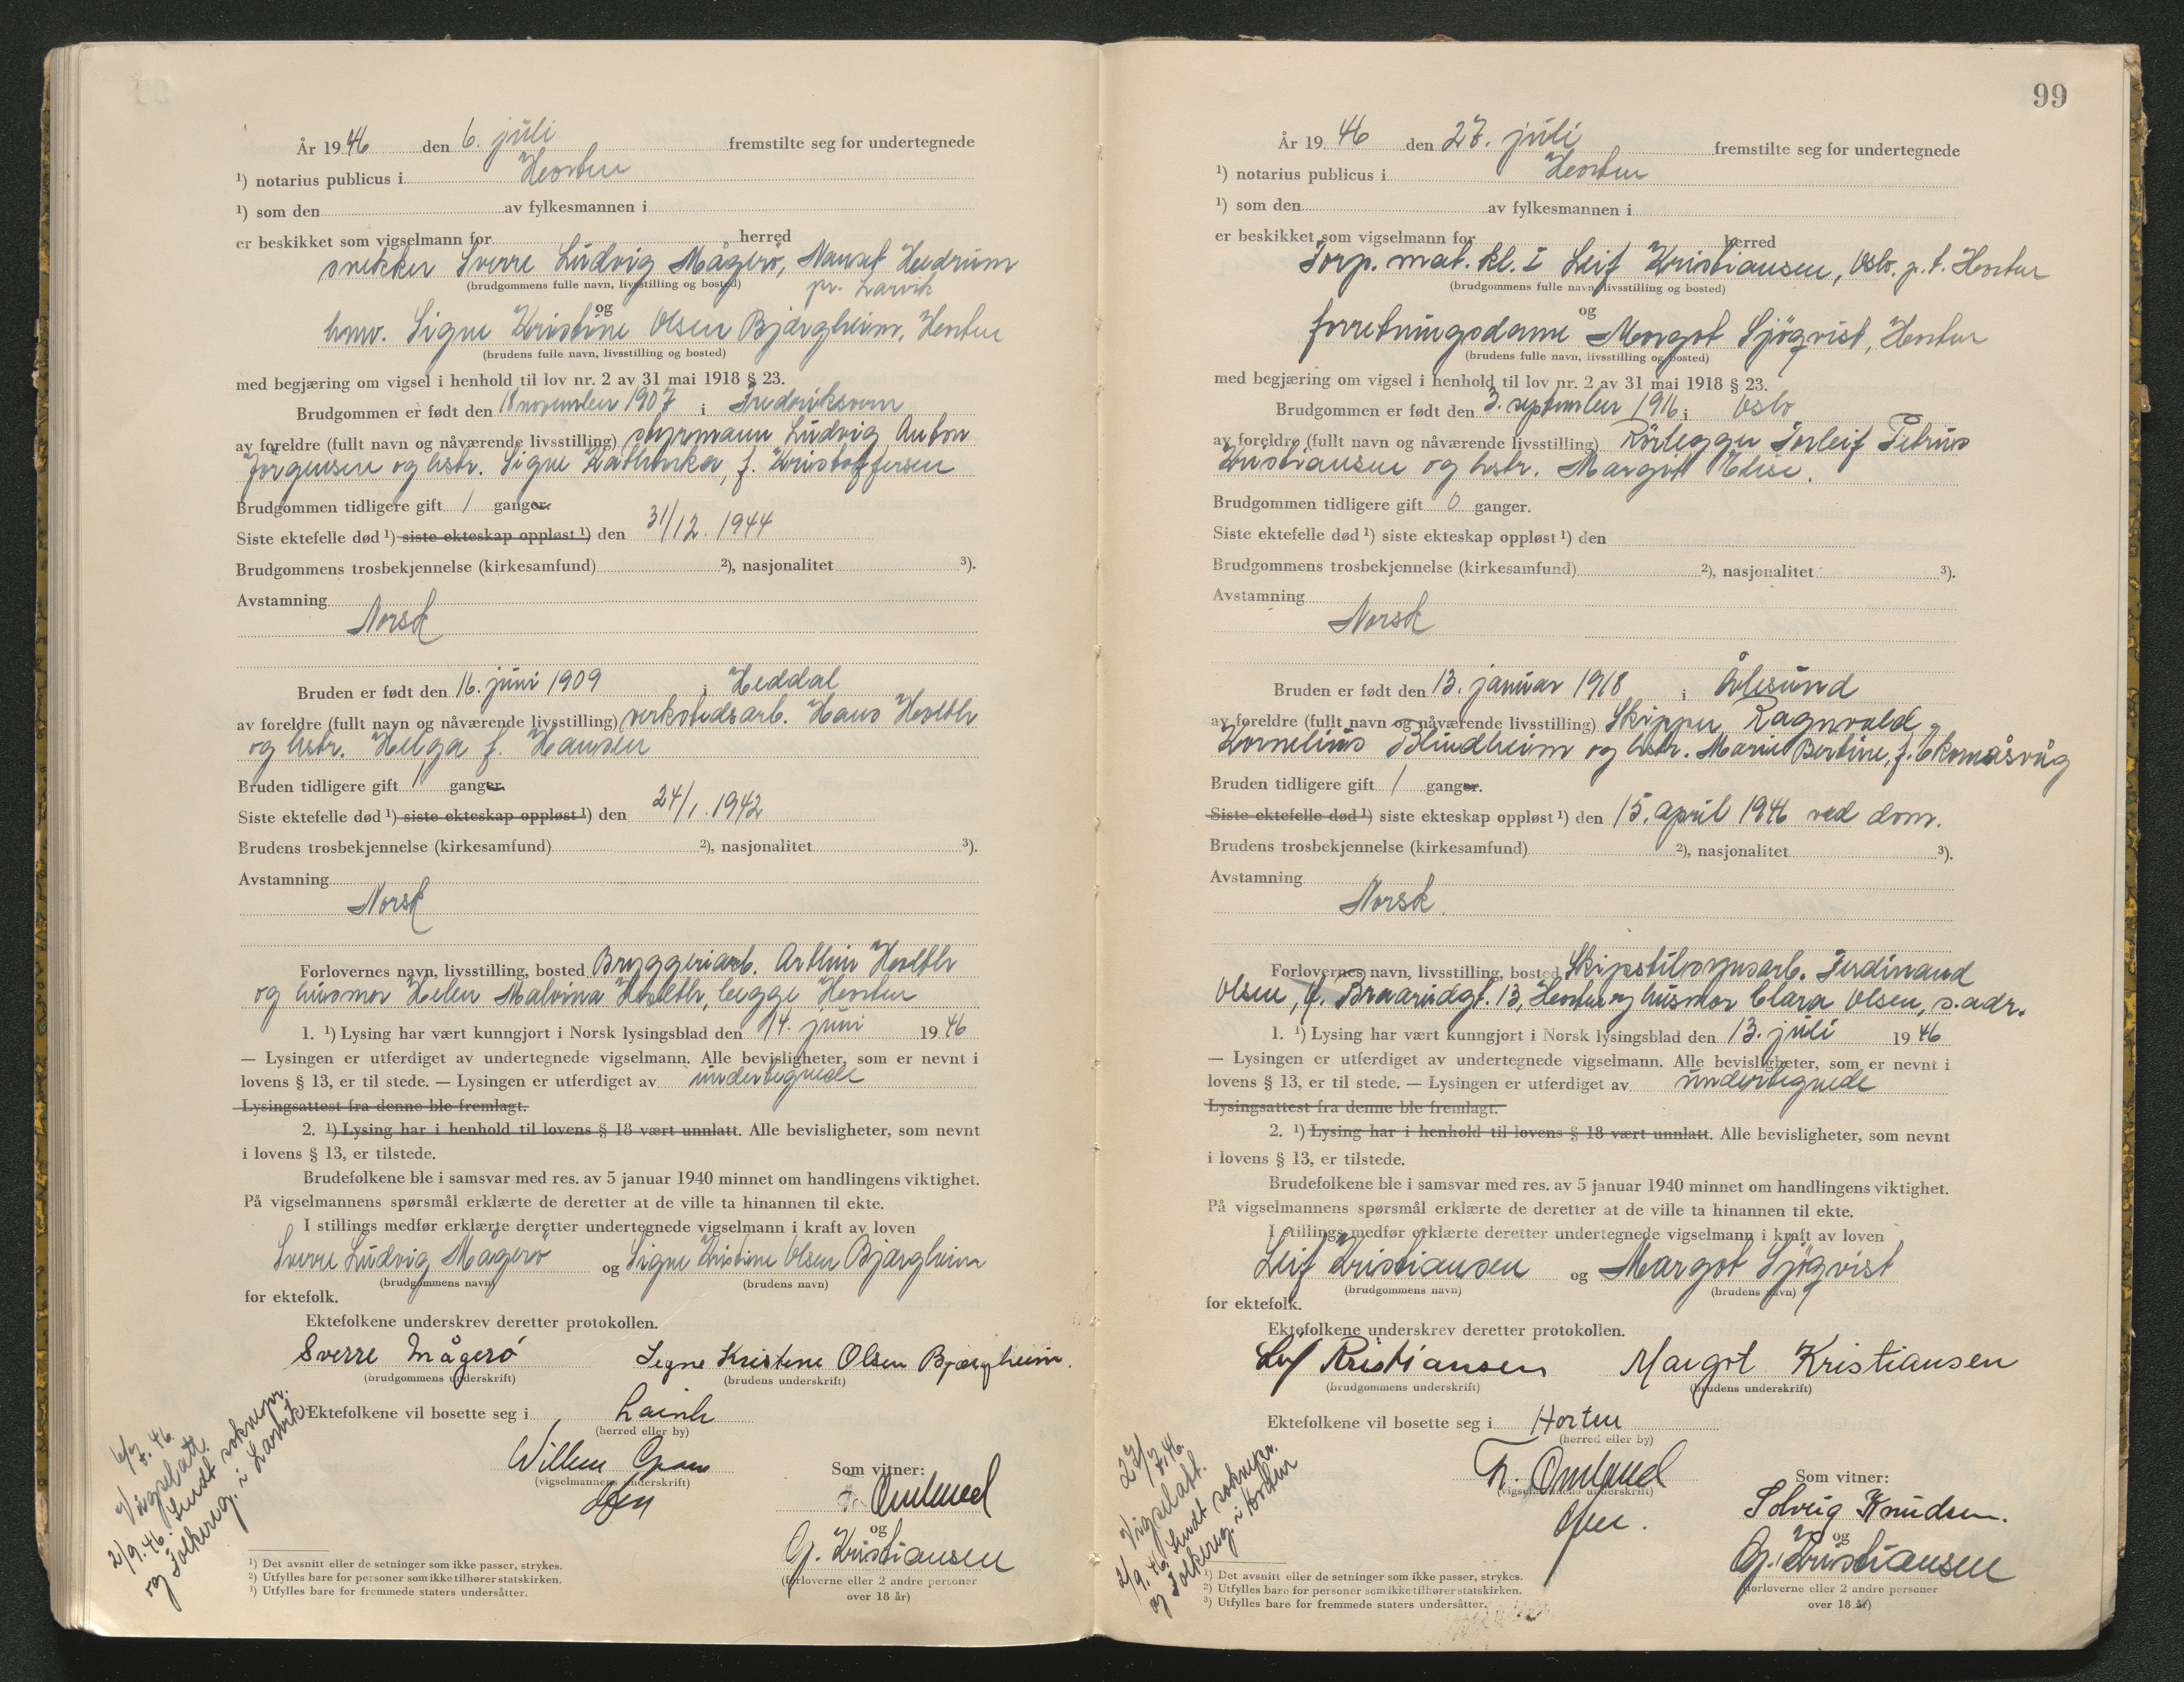 År 1946 den 6. juli fremstilte seg for undertegnede
¹) notarius publicus i Horten
¹) som den av fylkesmannen i
er beskikket som vigselmann for herred
snekker Sverre Ludvig Mågerö, Nanset Hedrum
(brudgommens fulle navn, livsstilling og bosted) pr. Larvik
og
hmv. Signe Kristine Olsen Bjærgheim, Horten
(brudens fulle navn, livsstilling og bosted)
med begjæring om vigsel i henhold til lov nr. 2 av 31 mai 1918 § 23.
Brudgommen er født den 18 november 1907 i Fredriksvern
av foreldre (fullt navn og nåværende livsstilling) styrmann Ludvig Anton
Jörgensen og hstr. Signe Kathinka, f. Kristoffersen
Brudgommen tidligere gift 1 ganger.
Siste ektefelle død ¹) siste ekteskap oppløst ¹) den 31/12. 1944
Brudgommens trosbekjennelse (kirkesamfund) ²), nasjonalitet ³).
Avstamning
Norsk
Bruden er født den 16. juni 1909 i Heddal
av foreldre (fullt navn og nåværende livsstilling) verkstedsarb. Hans
og hstr. Helga f. Hansen
Bruden tidligere gift 1 ganger.
Siste ektefelle død ¹) siste ekteskap oppløst ¹) den 24/1. 1942
Brudens trosbekjennelse (kirkesamfund) ²), nasjonalitet ³).
Avstamning
Norsk
Forlovernes navn, livsstilling, bosted Bryggeriarb. Arthur
og husmor Helen Malvina begge Horten
1. ¹) Lysing har vært kunngjort i Norsk lysingsblad den 14. juni 1946
— Lysingen er utferdiget av undertegnede vigselmann. Alle bevisligheter, som er nevnt i
lovens § 13, er til stede. — Lysingen er utferdiget av undertegnede
Lysingsattest fra denne ble fremlagt.
2. ¹) Lysing har i henhold til lovens § 18 vært unnlatt. Alle bevisligheter, som nevnt
i lovens § 13, er tilstede.
Brudefolkene ble i samsvar med res. av 5 januar 1940 minnet om handlingens viktighet.
På vigselmannens spørsmål erklærte de deretter at de ville ta hinannen til ekte.
I stillings medfør erklærte deretter undertegnede vigselmann i kraft av loven
Sverre Ludvig Mågerö og Signe Kristine Olsen Bjærgheim
(brudgommens navn) (brudens navn)
for ektefolk.
Ektefolkene underskrev deretter protokollen.
Sverre Mågerö Signe Kristine Olsen Bjærgheim.
(brudgommens underskrift) (brudens underskrift)
Ektefolkene vil bosette seg i Larvik
(herred eller by)
Som vitner:
(vigselmannens underskrift)
og
G. Kristiansen
(forloverne eller 2 andre personer
over 18 år)
6/7. 46.
Vigselatt.
2/9. 46. Sendt soknepr.
og Folkereg. i Larvik.
¹) Det avsnitt eller de setninger som ikke passer, strykes.
²) Utfylles bare for personer som ikke tilhører statskirken.
³) Utfylles bare for fremmede staters undersåtter.
99
År 1946 den 27. juli fremstilte seg for undertegnede
¹) notarius publicus i Horten
¹) som den av fylkesmannen i
er beskikket som vigselmann for herred
Torp. mat. kl. I Leif Kristiansen, Oslo. p.t. Horten
(brudgommens fulle navn, livsstilling og bosted)
og
forretningsdame Margot Sjöqvist, Horten
(brudens fulle navn, livsstilling og bosted)
med begjæring om vigsel i henhold til lov nr. 2 av 31 mai 1918 § 23.
Brudgommen er født den 3. september 1916 i Oslo
av foreldre (fullt navn og nåværende livsstilling) Rörlegger Torleif Petrus
Kristiansen og hstr. Margot Elise.
Brudgommen tidligere gift 0 ganger.
Siste ektefelle død ¹) siste ekteskap oppløst ¹) den
Brudgommens trosbekjennelse (kirkesamfund) ²), nasjonalitet ³).
Avstamning
Norsk
Bruden er født den 13. januar 1918 i Ålesund
av foreldre (fullt navn og nåværende livsstilling) Skipper Ragnvald
Kornelius Blindheim og hstr. Marie Bertine, f.
Bruden tidligere gift 1 ganger.
Siste ektefelle død ¹) siste ekteskap oppløst ¹) den 15. april 1946 ved dom.
Brudens trosbekjennelse (kirkesamfund) ²), nasjonalitet ³).
Avstamning
Norsk.
Forlovernes navn, livsstilling, bosted Skipstilsynsarb. Ferdinand
Olsen, Braarudgt. 13, Horten og husmor Clara Olsen, s. adr.
1. ¹) Lysing har vært kunngjort i Norsk lysingsblad den 13. juli 1946
— Lysingen er utferdiget av undertegnede vigselmann. Alle bevisligheter, som er nevnt i
lovens § 13, er til stede. — Lysingen er utferdiget av undertegnede
Lysingsattest fra denne ble fremlagt.
2. ¹) Lysing har i henhold til lovens § 18 vært unnlatt. Alle bevisligheter, som nevnt
i lovens § 13, er tilstede.
Brudefolkene ble i samsvar med res. av 5 januar 1940 minnet om handlingens viktighet.
På vigselmannens spørsmål erklærte de deretter at de ville ta hinannen til ekte.
I stillings medfør erklærte deretter undertegnede vigselmann i kraft av loven
Leif Kristiansen og Margot Sjöqvist
(brudgommens navn) (brudens navn)
for ektefolk.
Ektefolkene underskrev deretter protokollen.
Leif Kristiansen Margot Kristiansen
(brudgommens underskrift) (brudens underskrift)
Ektefolkene vil bosette seg i Horten
(herred eller by)
Som vitner:
(vigselmannens underskrift)
Solveig Knudsen.
og
G. Kristiansen
(forloverne eller 2 andre personer
over 18 år)
27/7.46.
Vigselatt.
2/9. 46. Sendt soknepr.
og Folkereg. i Horten
¹) Det avsnitt eller de setninger som ikke passer, strykes.
²) Utfylles bare for personer som ikke tilhører statskirken.
³) Utfylles bare for fremmede staters undersåtter.